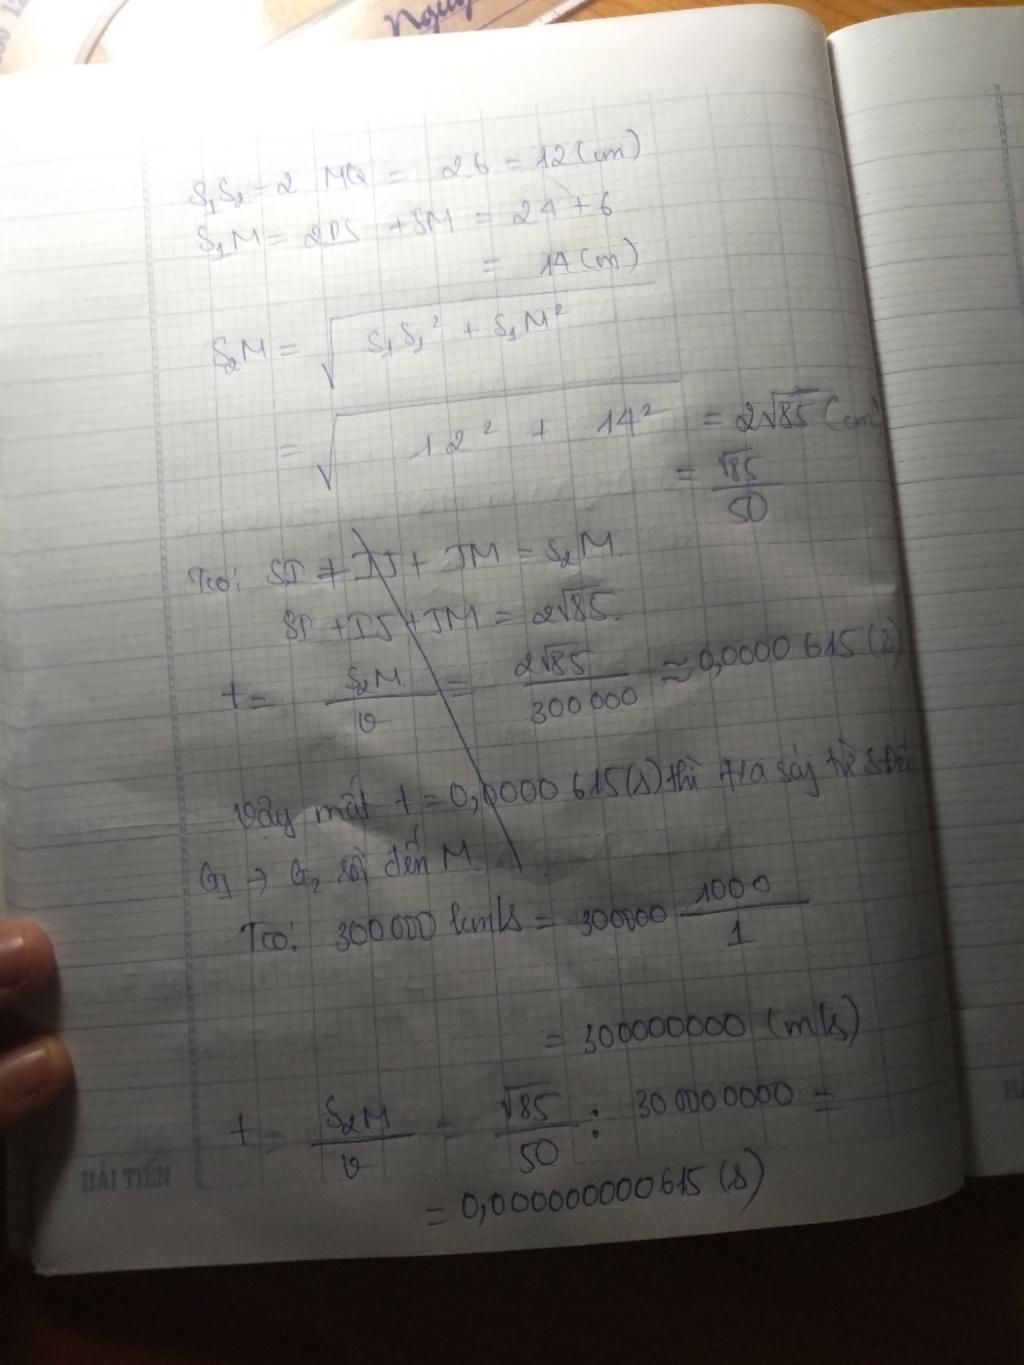 S₁S₂ = 2 MQ = 2.6 = 12 (cm)
S₁M = 2PS + SM = 2.4 + 6
= 14 (m)
S₂M = √(S₁S₂² + S₁M²)
= √(12² + 14²) = 2√85 (cm)
= √85/50
Tcó: SI + IJ + JM = S₂M.
SI + IJ + JM = 2√85.
t = S₂M/v = 2√85/300000 ≈ 0,0000615 (s)
Vậy mất t = 0,0000615 (s) thì tia sáng từ S đến
G₁ → G₂ rồi đến M.
Tcó: 300000 km/s = 300000 1000/1
= 300000000 (m/s)
t = S₂M/v = √85/50 : 300000000 =
= 0,000000000615 (s)
HẢI TIẾN